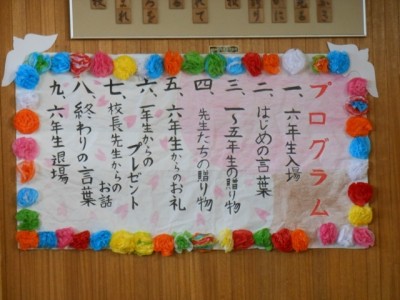 プログラム
一、六年生入場
二、はじめの言葉
三、一〜五年生の贈り物
四、先生たちの贈り物
五、六年生からのお礼
六、一年生からの
プレゼント
七、校長先生からの
お話
八、終わりの言葉
九、六年生退場